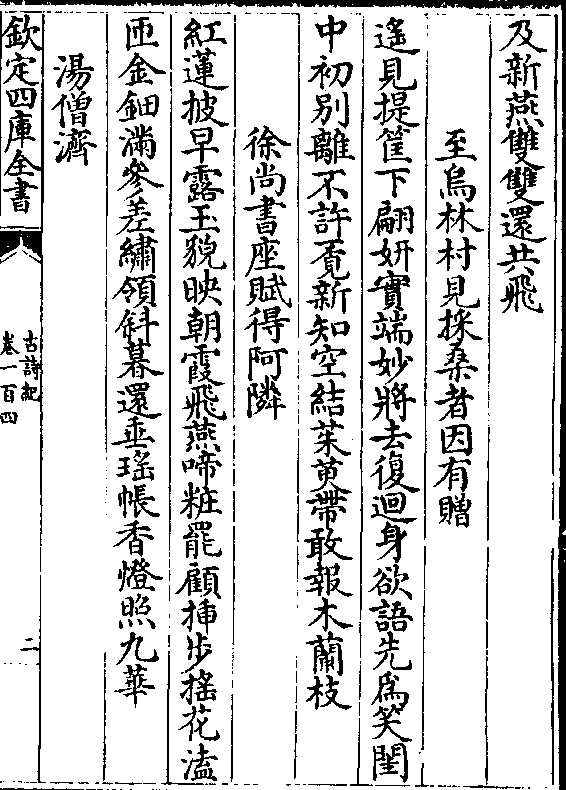 及新燕雙雙還共飛
至烏林村見採桑者因有贈
遙見提筐下翩妍實端妙將去復迴身欲語先爲笑閨
中初别離不許覔新知空結茱萸帶敢報木蘭枝
徐尚書座賦得阿隣
紅蓮披早露玉貌映朝霞飛燕啼粧罷顧揷步搖花溘
匝金鈿滿參差繡領斜暮還垂瑤帳香燈照九華
湯僧濟
欽定四庫全書
古詩紀
卷一百四
二